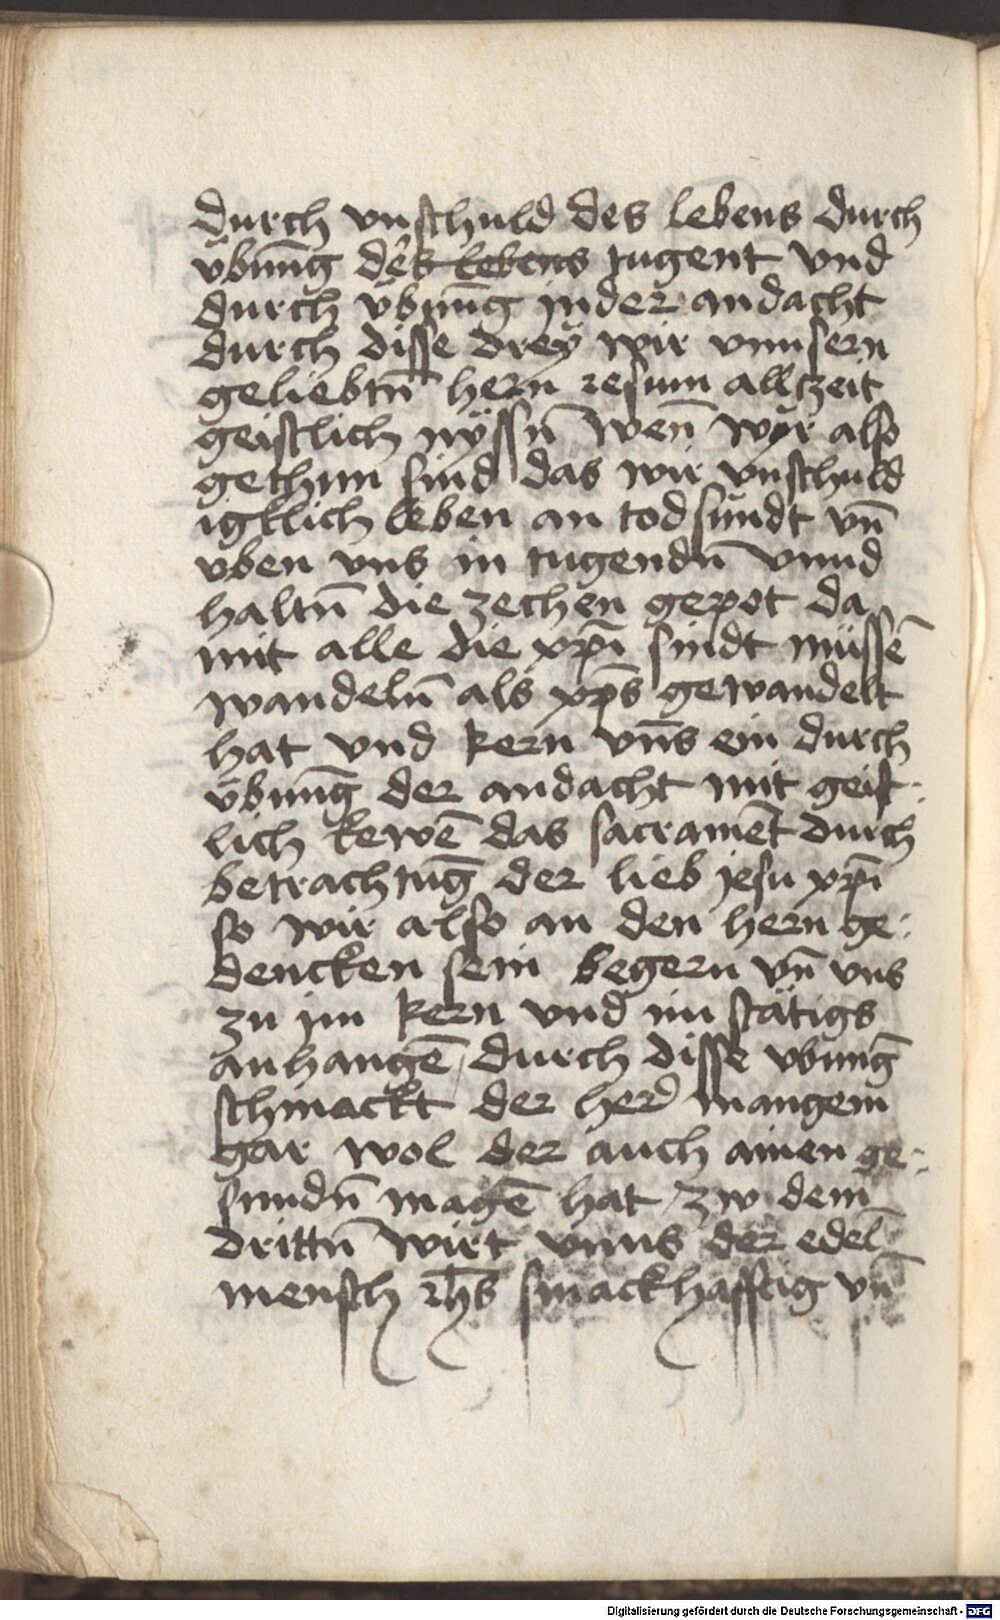 durch vnschuld des lebens durch
vbūng des lebens tugent vnd
durch vbūng in der andacht
durch disse drey wir vnnsern
geliebtn̄ hern iesum allczeit
geistlich nÿssn̄ wen̄ wyr also
gethun sind das wir vnschuld
igklich leben an todsündt vn̄
vben vns in tugendn̄ vnnd
haltn̄ die zechen gepot da
mit alle die xp̄i sindt müssē
wandeln̄ als xp̄s gewandelt
hat vnd kern vn̄s ein durch
vbūng der andacht mit geist:
lich kewē das sacramēt durch
betrachtūg der lieb jesu xp̄i
so wir also an den hern ge:
dencken sein begern vn̄ vns
zu jm kern vnd im stätigs
anhangē / durch disse vbūng
schmackt der her mangem
gar wol der auch ainen ge:
sundn̄ magē hat / zw dem
drittn̄ wirt vnns der edel
mensch ih̄s smackhafftig vn̄
Digitalisierung gefördert durch die Deutsche Forschungsgemeinschaft - DFG